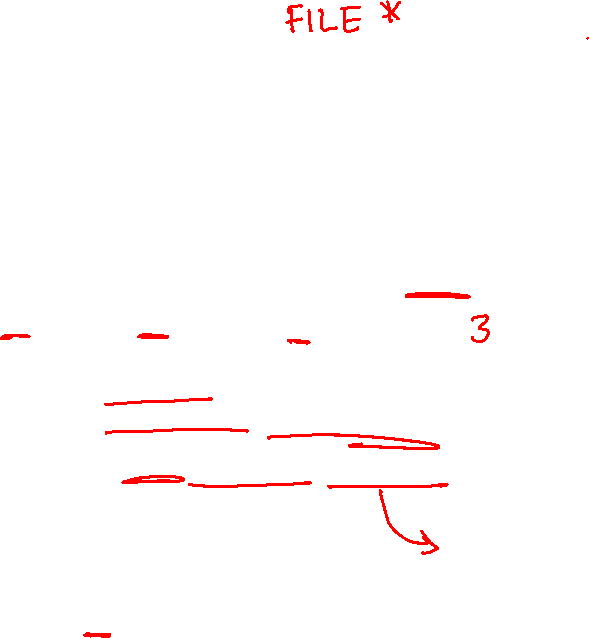 FILE *
3